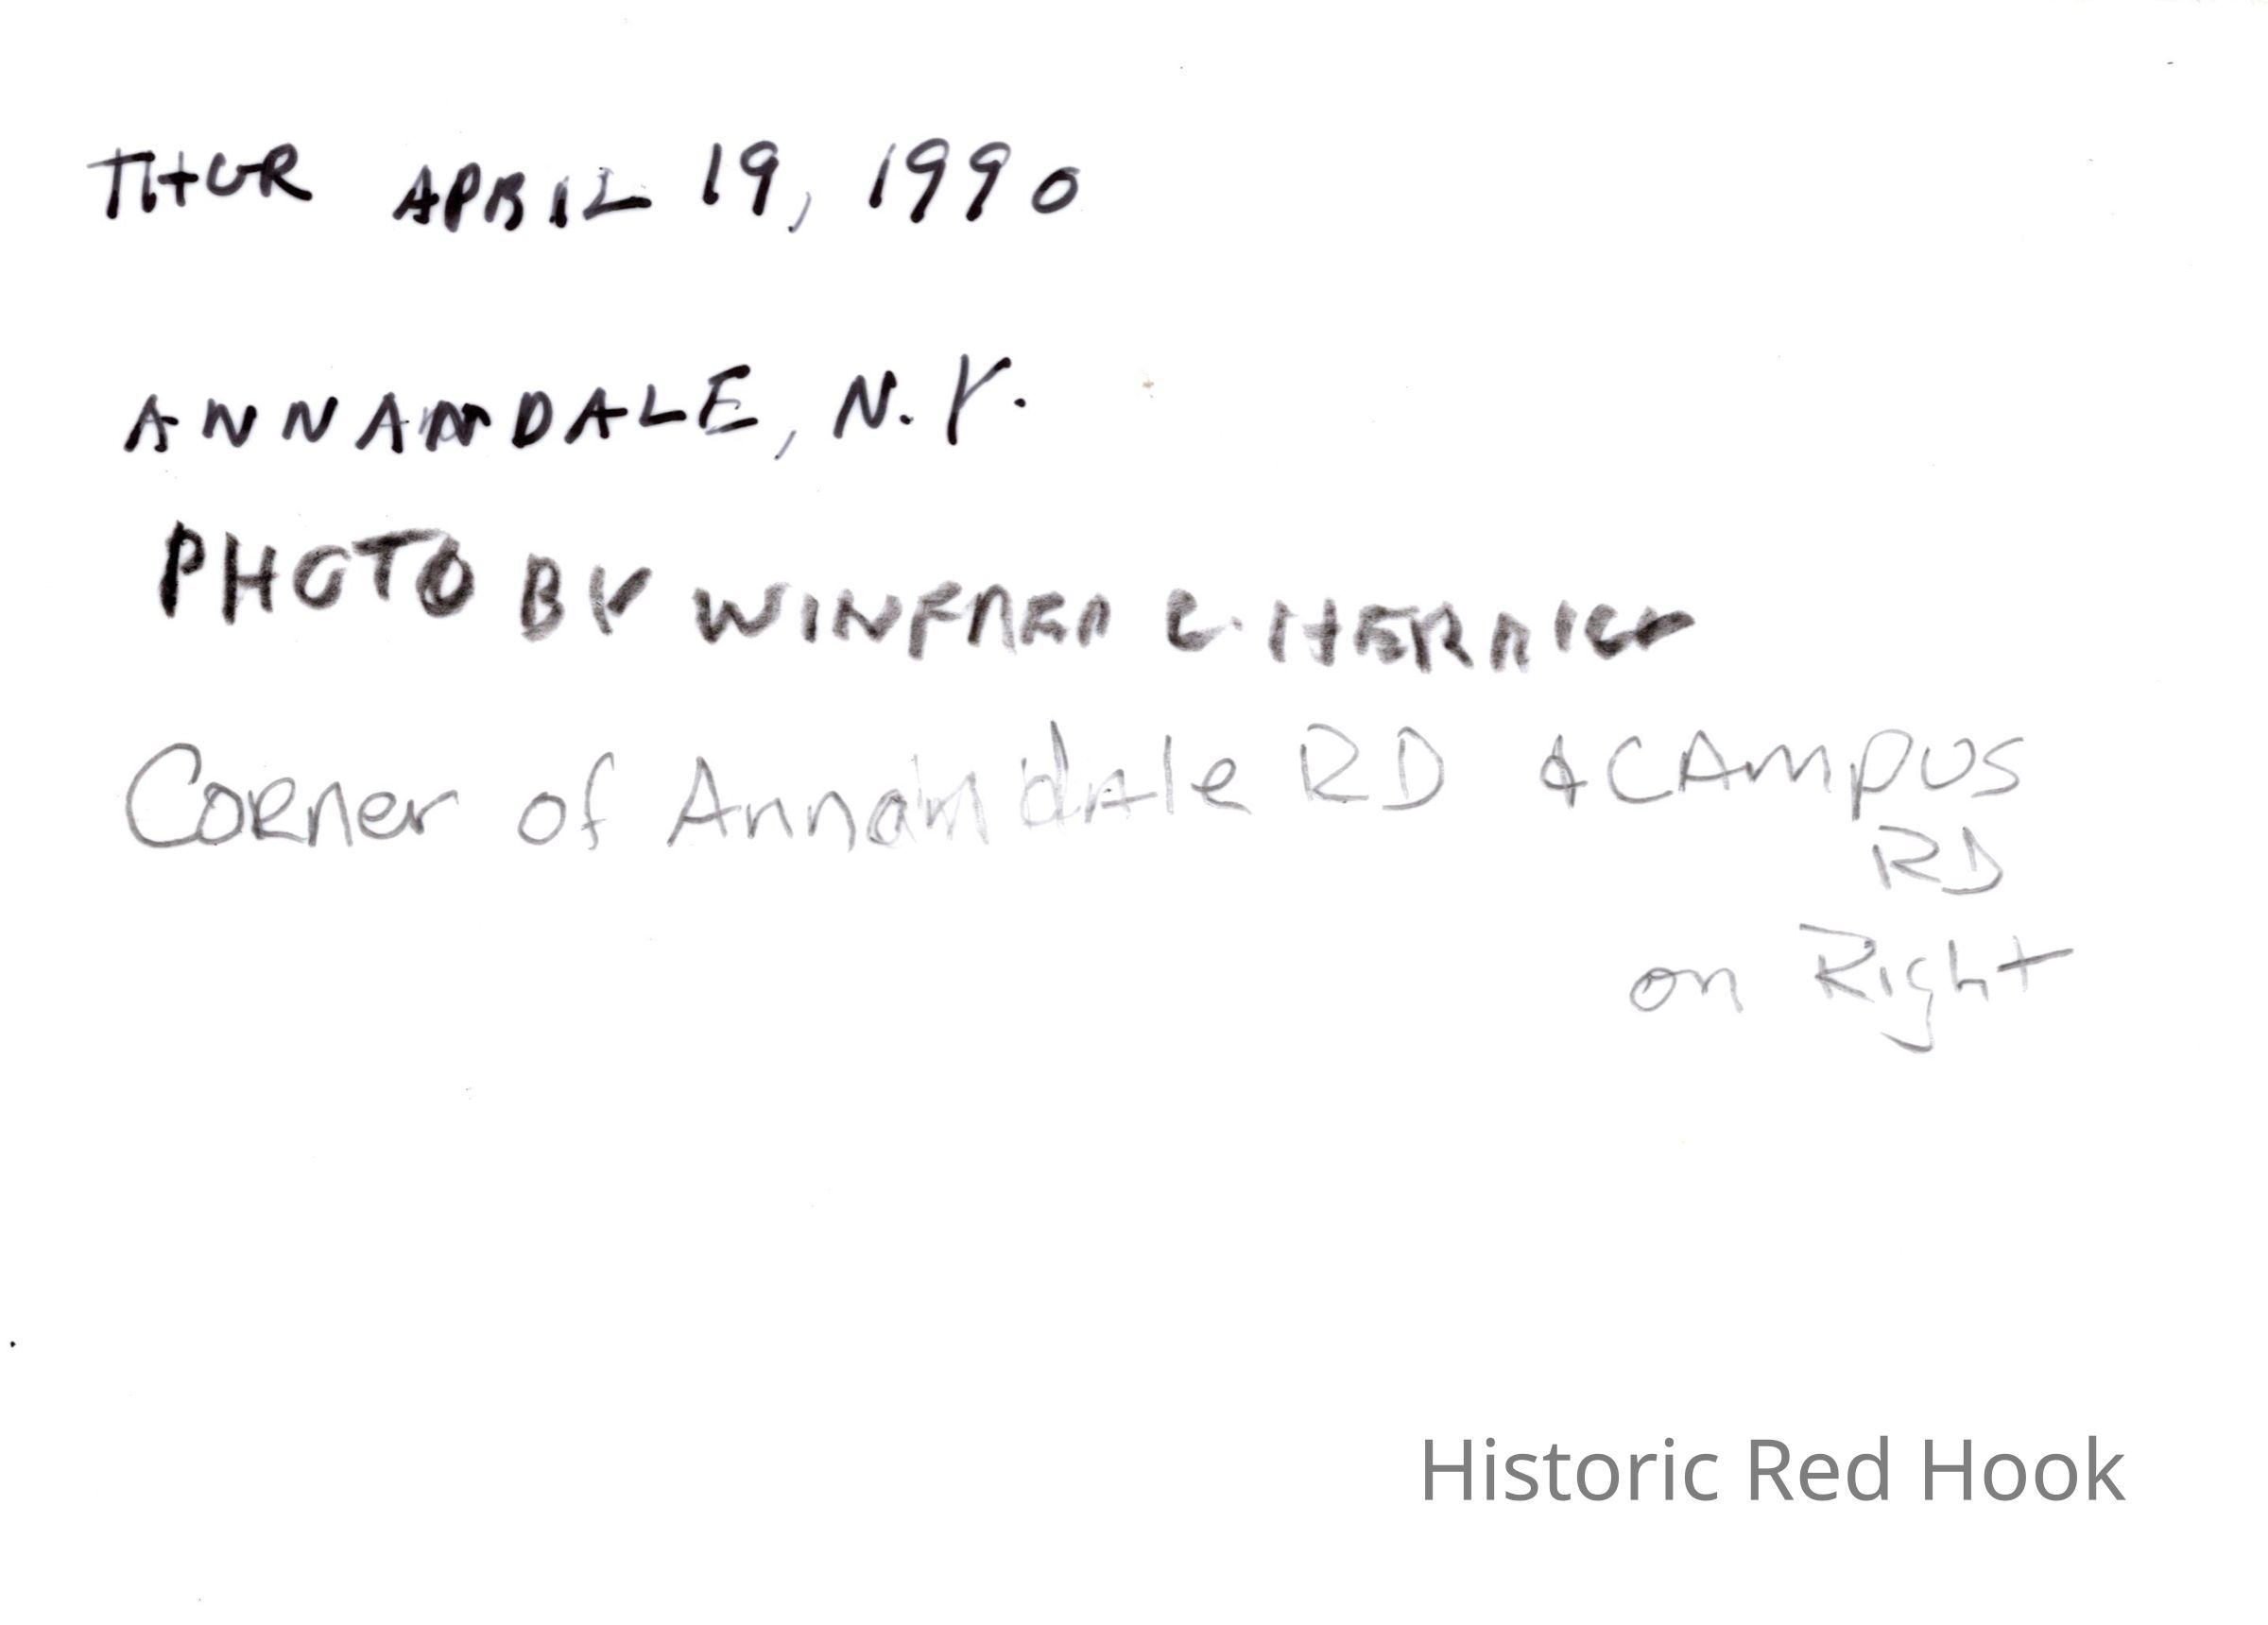 THUR APRIL 19, 1990
ANNANDALE, N.Y.
PHOTO BY WINFRED C. HERRICK
Corner of Annandale RD & CAMPUS
RD
on Right
Historic Red Hook